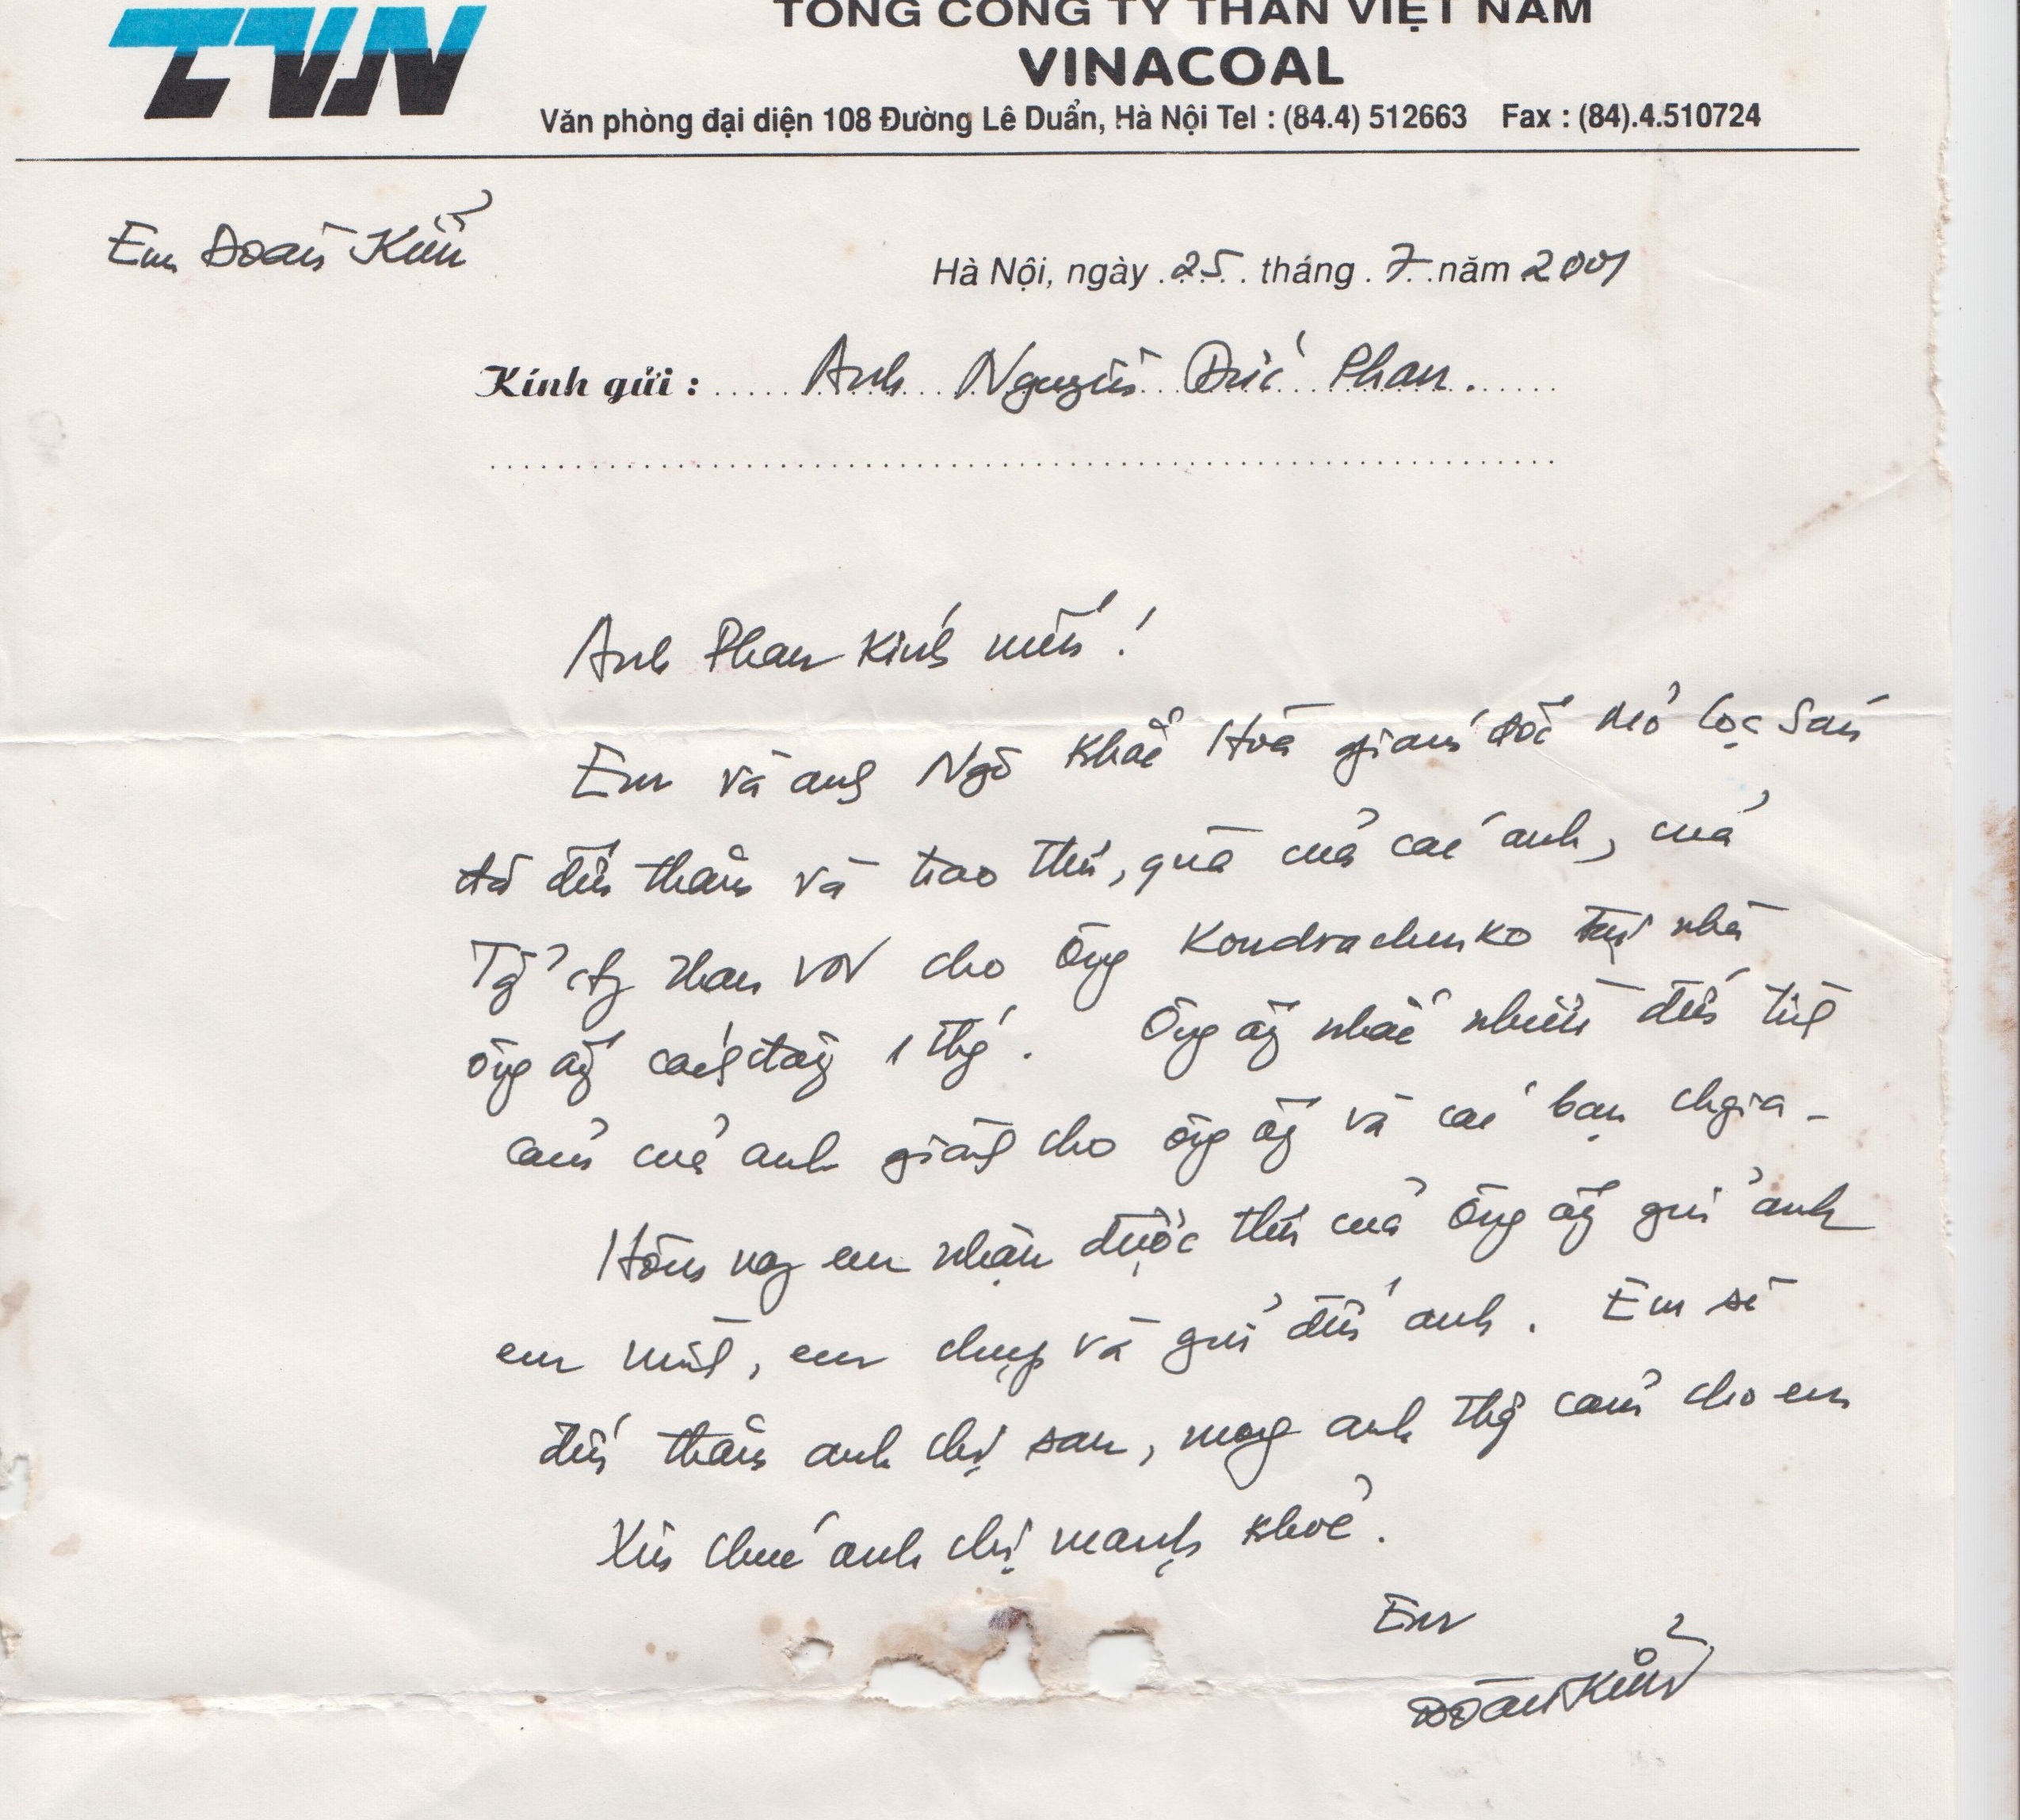 TVN
TỔNG CÔNG TY THAN VIỆT NAM
VINACOAL
Văn phòng đại diện 108 Đường Lê Duẩn, Hà Nội Tel : (84.4) 512663 Fax : (84).4.510724
Em Đoàn Kiển
Hà Nội, ngày 25 tháng 7 năm 2001
Kính gửi : Anh Nguyễn Đức Phan.
Anh Phan kính mến!
Em và ang Ngô Khắc Hoà giám đốc Mỏ Cọc Sáu
đã đến thăm và trao thư, quà của các anh, của
Tg cty than VN cho ông Kondrachenko tại nhà
ông ấy cách đây 1 thg. Ông ấy nhắc nhiều đến tình
cảm của anh giành cho ông ấy và các bạn chgia -
Hôm nay em nhận được thư của ông ấy gửi anh
em mình, em chụp và gửi đến anh. Em sẽ
đến thăm anh chị sau, mong anh thg cảm cho em
Xin chúc anh chị mạnh khoẻ.
Em
Đoàn Kiển